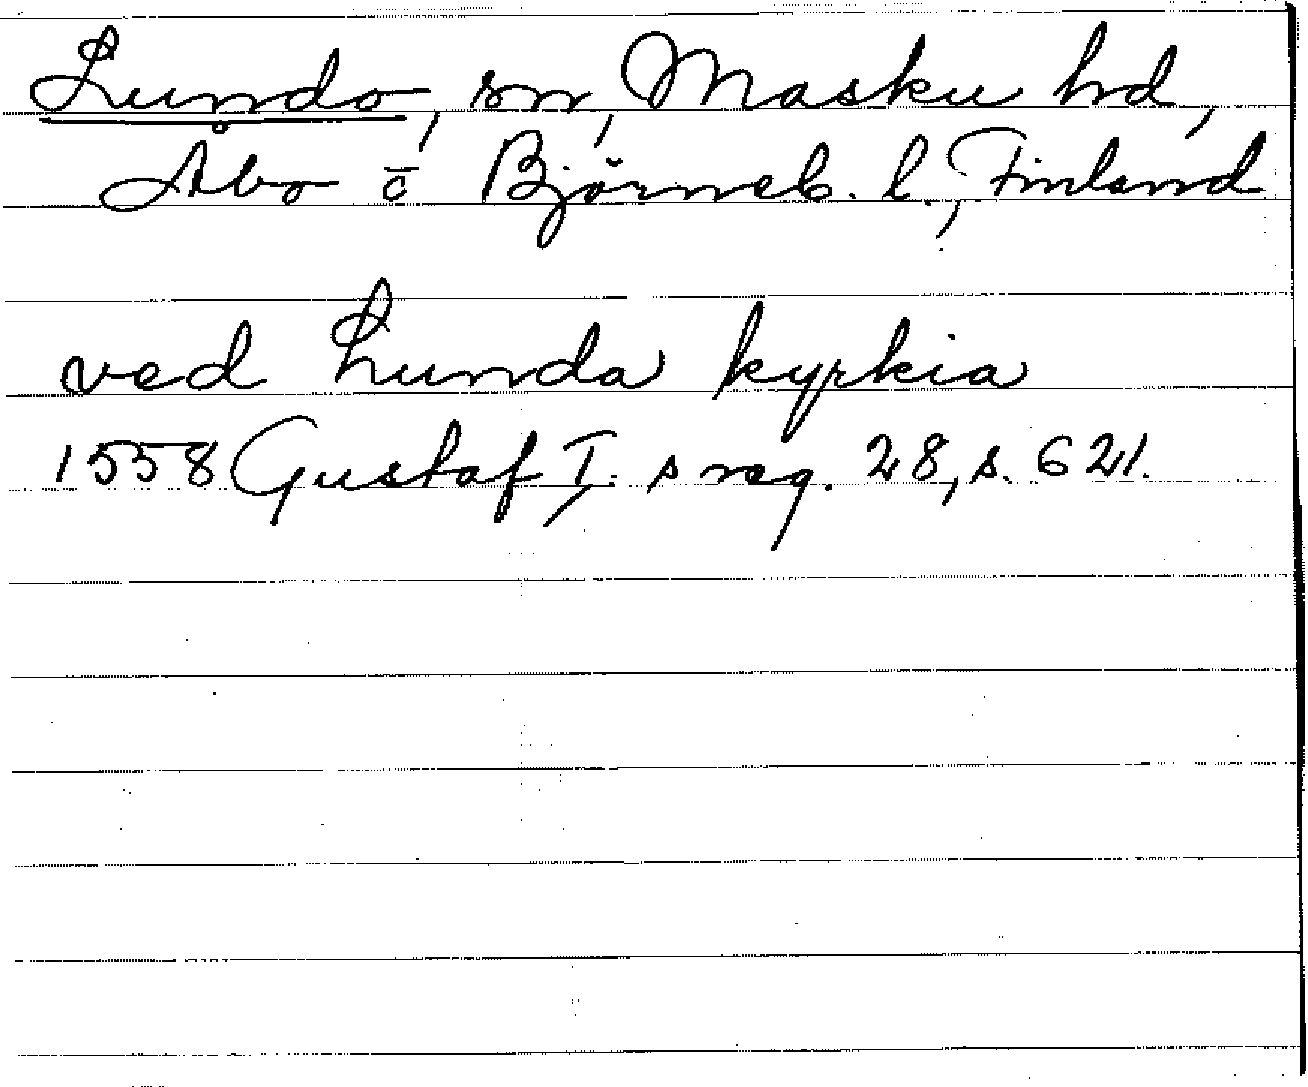 Lundo, sn, Masku hd,
Åbo o Björneb. l., Finland
ved Lunda kyrkia
1558 Gustaf I:s reg. 28, s. 621.